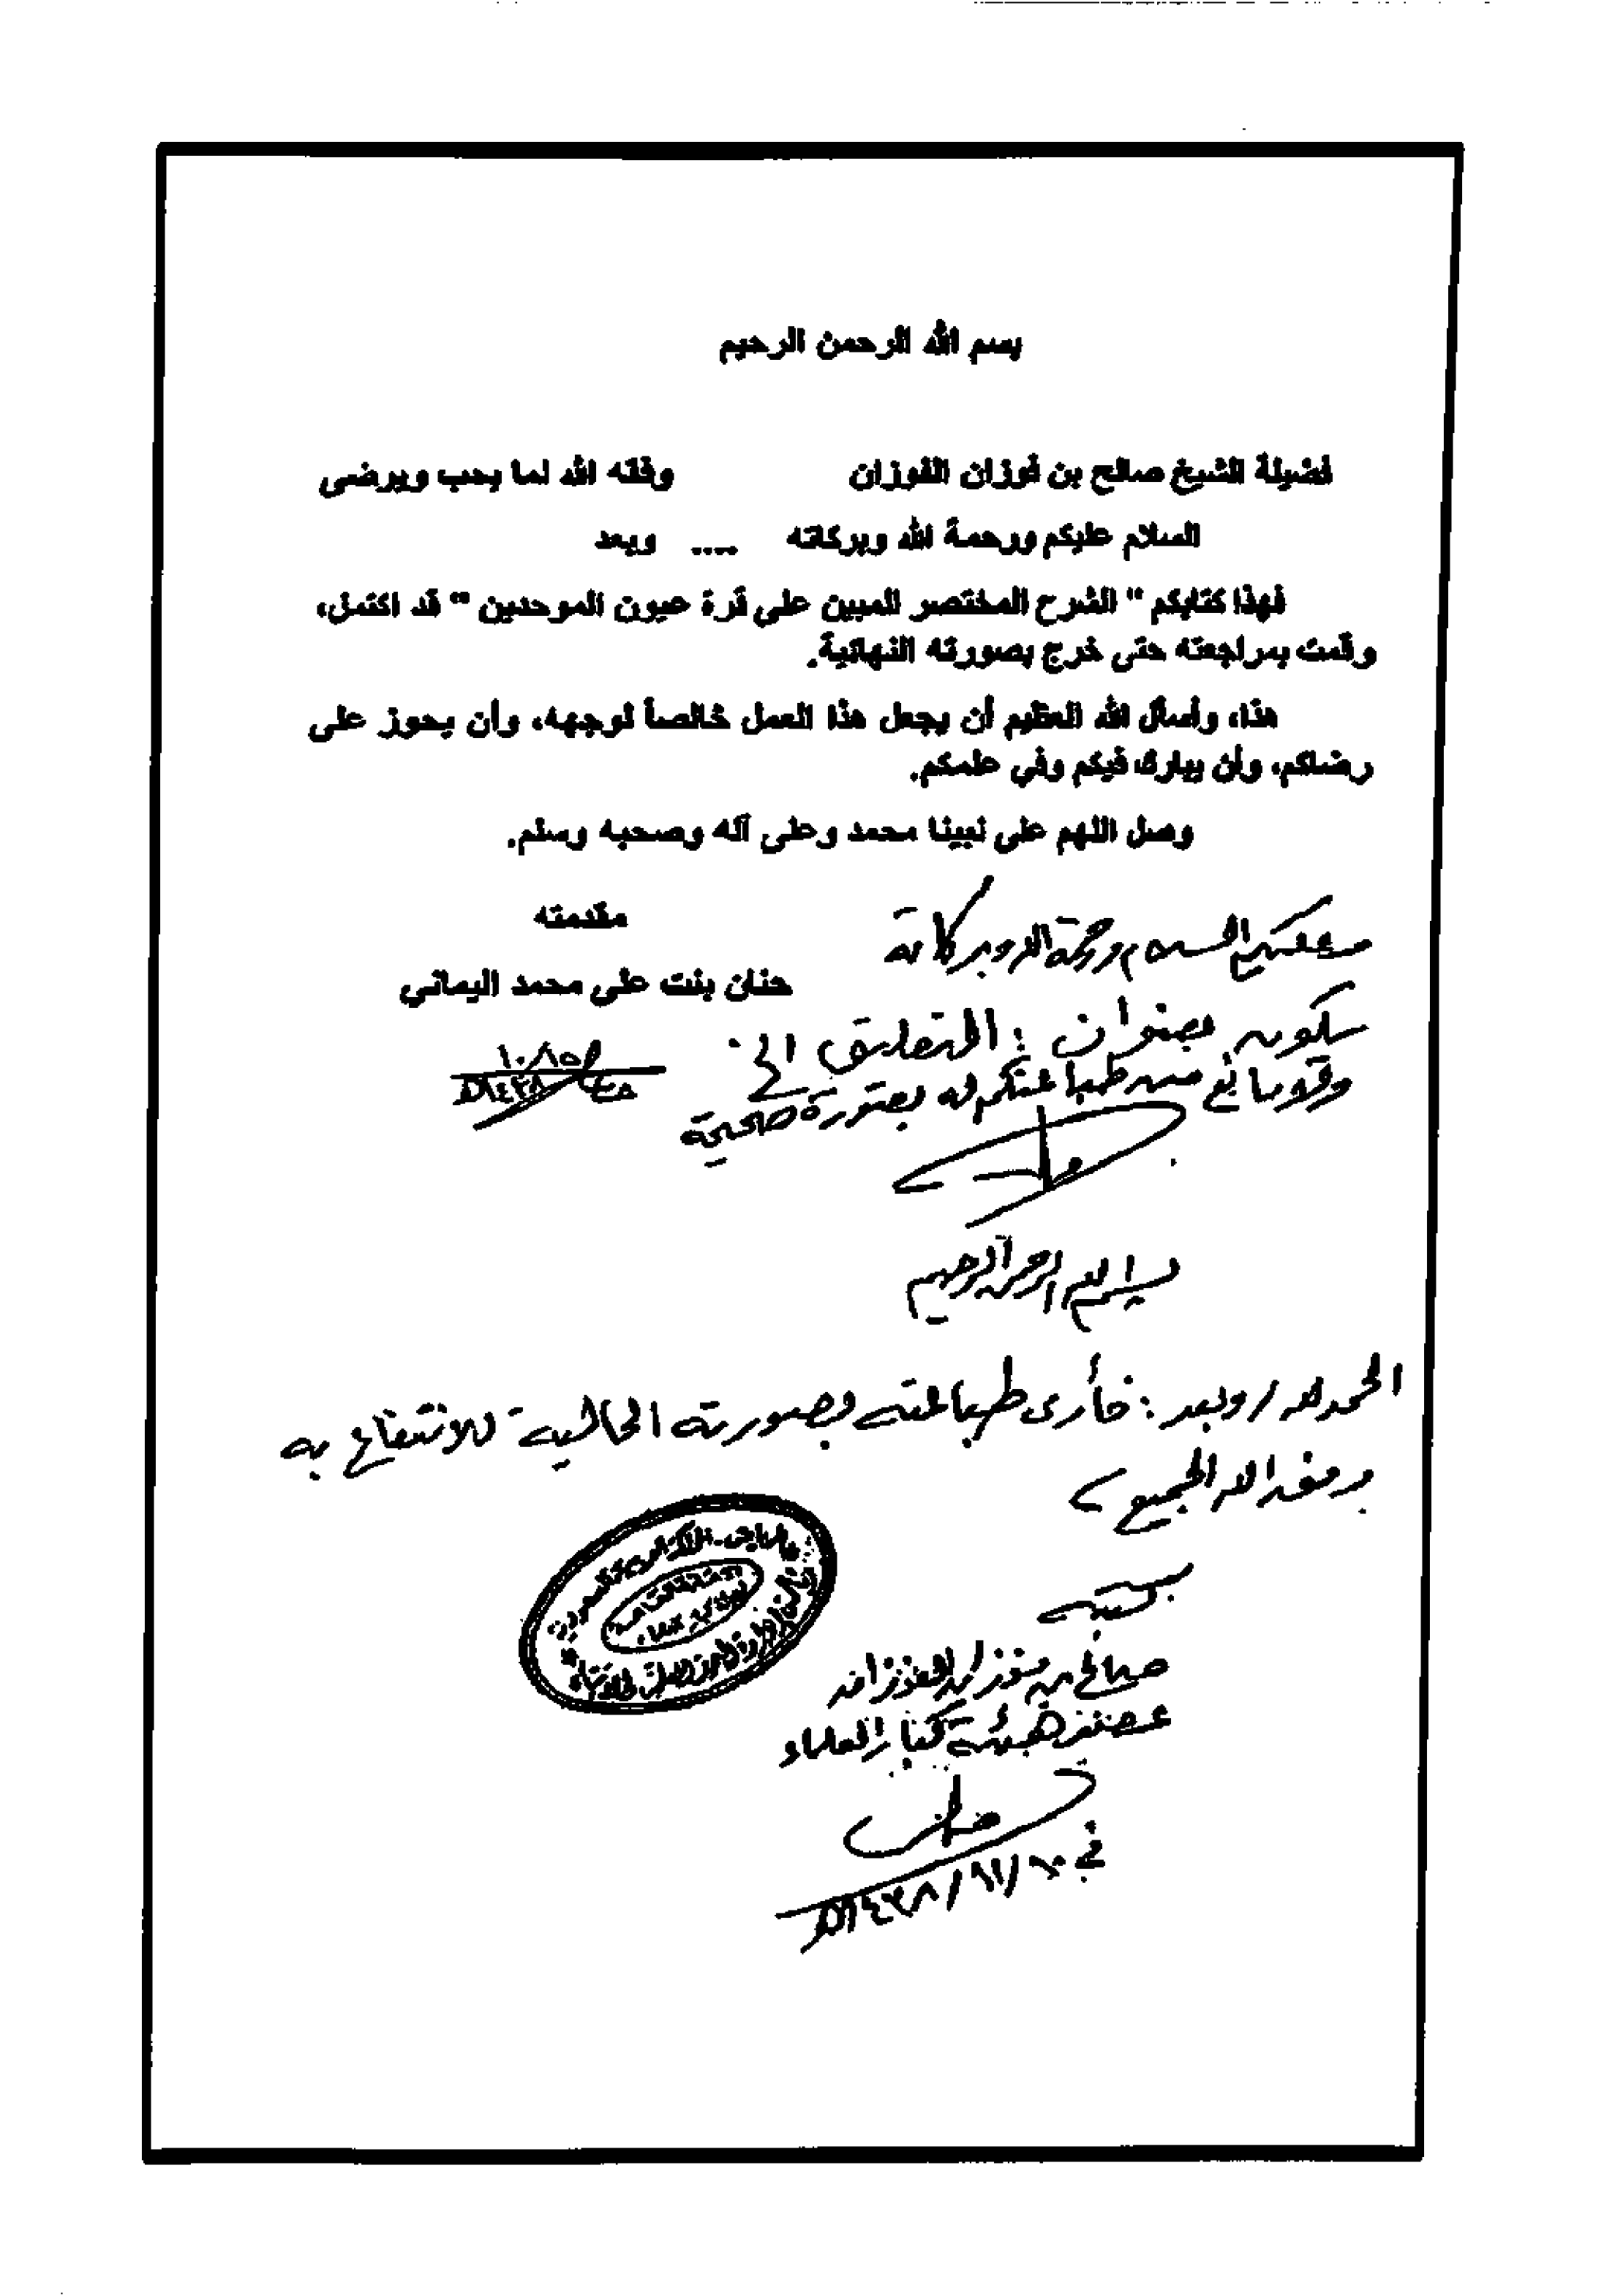 بسم الله الرحمن الرحيم
فضيلة الشيخ صالح بن فوزان الفوزان وفقه الله لما يحب ويرضى
السلام عليكم ورحمة الله وبركاته .... وبعد
فهذا كتابكم " الشرح المختصر المبين على قرة عيون الموحدين " قد اكتمل،
وقمت بمراجعته حتى خرج بصورته النهائية.
هذا، وأسأل الله العظيم أن يجعل هذا العمل خالصاً لوجهه، وأن يحوز على
رضاكم، وأن يبارك فيكم وفي علمكم.
وصل اللهم على نبينا محمد وعلى آله وصحبه وسلم.
مقدمته
حنان بنت علي محمد اليماني
وعليكم السلام ورحمة الله وبركاته
يكون بعنوان : التعليق الخ.
ولا مانع من طباعتكم له بصورة صحيحة
بسم الله الرحمن الرحيم
الحمد لله / وبعد : فأرى طباعته بصورته الحالية للانتفاع به
وفق الله الجميع
كتبه
صالح بن فوزان الفوزان
عضو هيئة كبار العلماء
في
١٤٣٨هـ